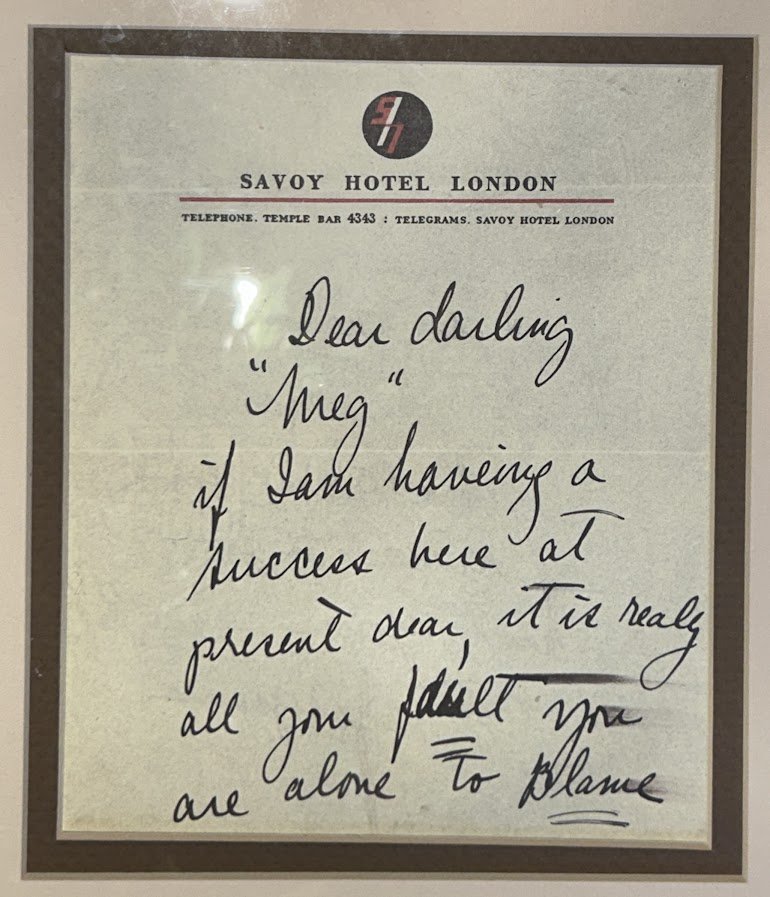 SH
SAVOY HOTEL LONDON
TELEPHONE. TEMPLE BAR 4343 : TELEGRAMS. SAVOY HOTEL LONDON
Dear darling
"Meg"
if I am haveing a
success here at
present dear, it is realy
all your fault you
are alone to Blame